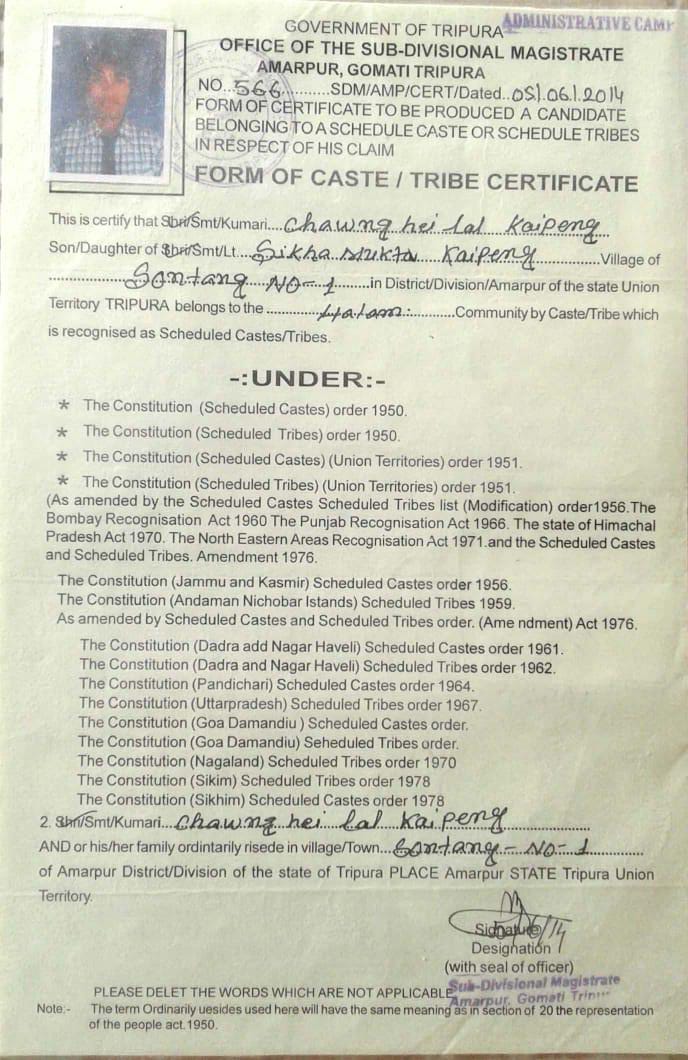 GOVERNMENT OF TRIPURA
ADMINISTRATIVE CAMP
OFFICE OF THE SUB-DIVISIONAL MAGISTRATE
AMARPUR, GOMATI TRIPURA
NO...566...........SDM/AMP/CERT/Dated..05/.06/.2014
FORM OF CERTIFICATE TO BE PRODUCED A CANDIDATE
BELONGING TO A SCHEDULE CASTE OR SCHEDULE TRIBES
IN RESPECT OF HIS CLAIM
FORM OF CASTE / TRIBE CERTIFICATE
This is certify that Shri/Smt/Kumari....Chawng hei lal Kaipeng
Son/Daughter of Shri/Smt/Lt....Sikha Mukta Kaipeng...............Village of
...............Sontang NO-1..........in District/Division/Amarpur of the state Union
Territory TRIPURA belongs to the ..............Halam:...........Community by Caste/Tribe which
is recognised as Scheduled Castes/Tribes.
-:UNDER:-
* The Constitution (Scheduled Castes) order 1950.
* The Constitution (Scheduled Tribes) order 1950.
* The Constitution (Scheduled Castes) (Union Territories) order 1951.
* The Constitution (Scheduled Tribes) (Union Territories) order 1951.
(As amended by the Scheduled Castes Scheduled Tribes list (Modification) order1956.The
Bombay Recognisation Act 1960 The Punjab Recognisation Act 1966. The state of Himachal
Pradesh Act 1970. The North Eastern Areas Recognisation Act 1971.and the Scheduled Castes
and Scheduled Tribes. Amendment 1976.
The Constitution (Jammu and Kasmir) Scheduled Castes order 1956.
The Constitution (Andaman Nichobar Istands) Scheduled Tribes 1959.
As amended by Scheduled Castes and Scheduled Tribes order. (Ame ndment) Act 1976.
The Constitution (Dadra add Nagar Haveli) Scheduled Castes order 1961.
The Constitution (Dadra and Nagar Haveli) Scheduled Tribes order 1962.
The Constitution (Pandichari) Scheduled Castes order 1964.
The Constitution (Uttarpradesh) Scheduled Tribes order 1967.
The Constitution (Goa Damandiu ) Scheduled Castes order.
The Constitution (Goa Damandiu) Seheduled Tribes order.
The Constitution (Nagaland) Scheduled Tribes order 1970
The Constitution (Sikim) Scheduled Tribes order 1978
The Constitution (Sikhim) Scheduled Castes order 1978
2. Shri/Smt/Kumari...Chawng hei lal Kaipeng................
AND or his/her family ordintarily risede in village/Town....Sontang - NO-1..........
of Amarpur District/Division of the state of Tripura PLACE Amarpur STATE Tripura Union
Territory.
Signature
Designation
(with seal of officer)
Sub-Divisional Magistrate
PLEASE DELET THE WORDS WHICH ARE NOT APPLICABLE
Amarpur, Gomati
Note:- The term Ordinarily uesides used here will have the same meaning as in section of 20 the representation
of the people act.1950.